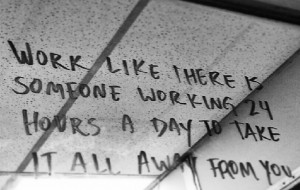 WORK LIKE THERE IS
SOMEONE WORKING 24
HOURS A DAY TO TAKE
IT ALL AWAY FROM YOU